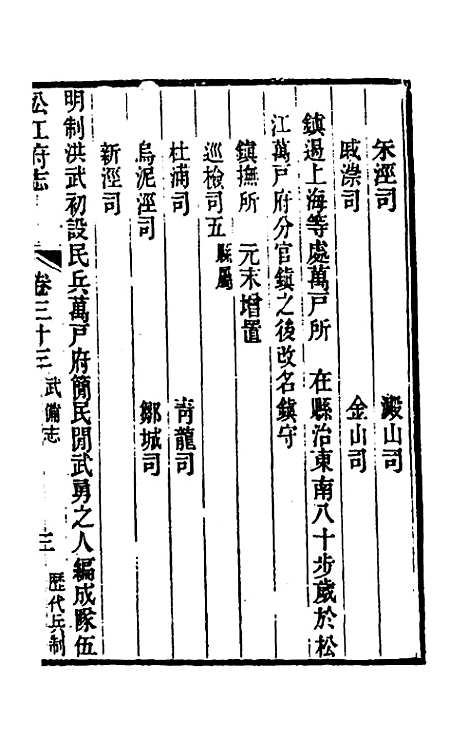 朱涇司　澱山司
戚漴司　金山司
鎮遏上海等處萬戸所　在縣治東南八十步歲於松
江萬戸府分官鎮之後改名鎮守
鎮撫所　元末增置
巡檢司五　縣屬
杜浦司　青龍司
烏泥涇司　鄒城司
新涇司
明制洪武初設民兵萬戸府簡民閒武勇之人編成隊伍
松江府志　卷三十三　武備志　三　歷代兵制